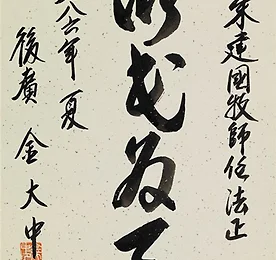 朱建國牧師任法正
民為
八六年 夏
後廣 金大中